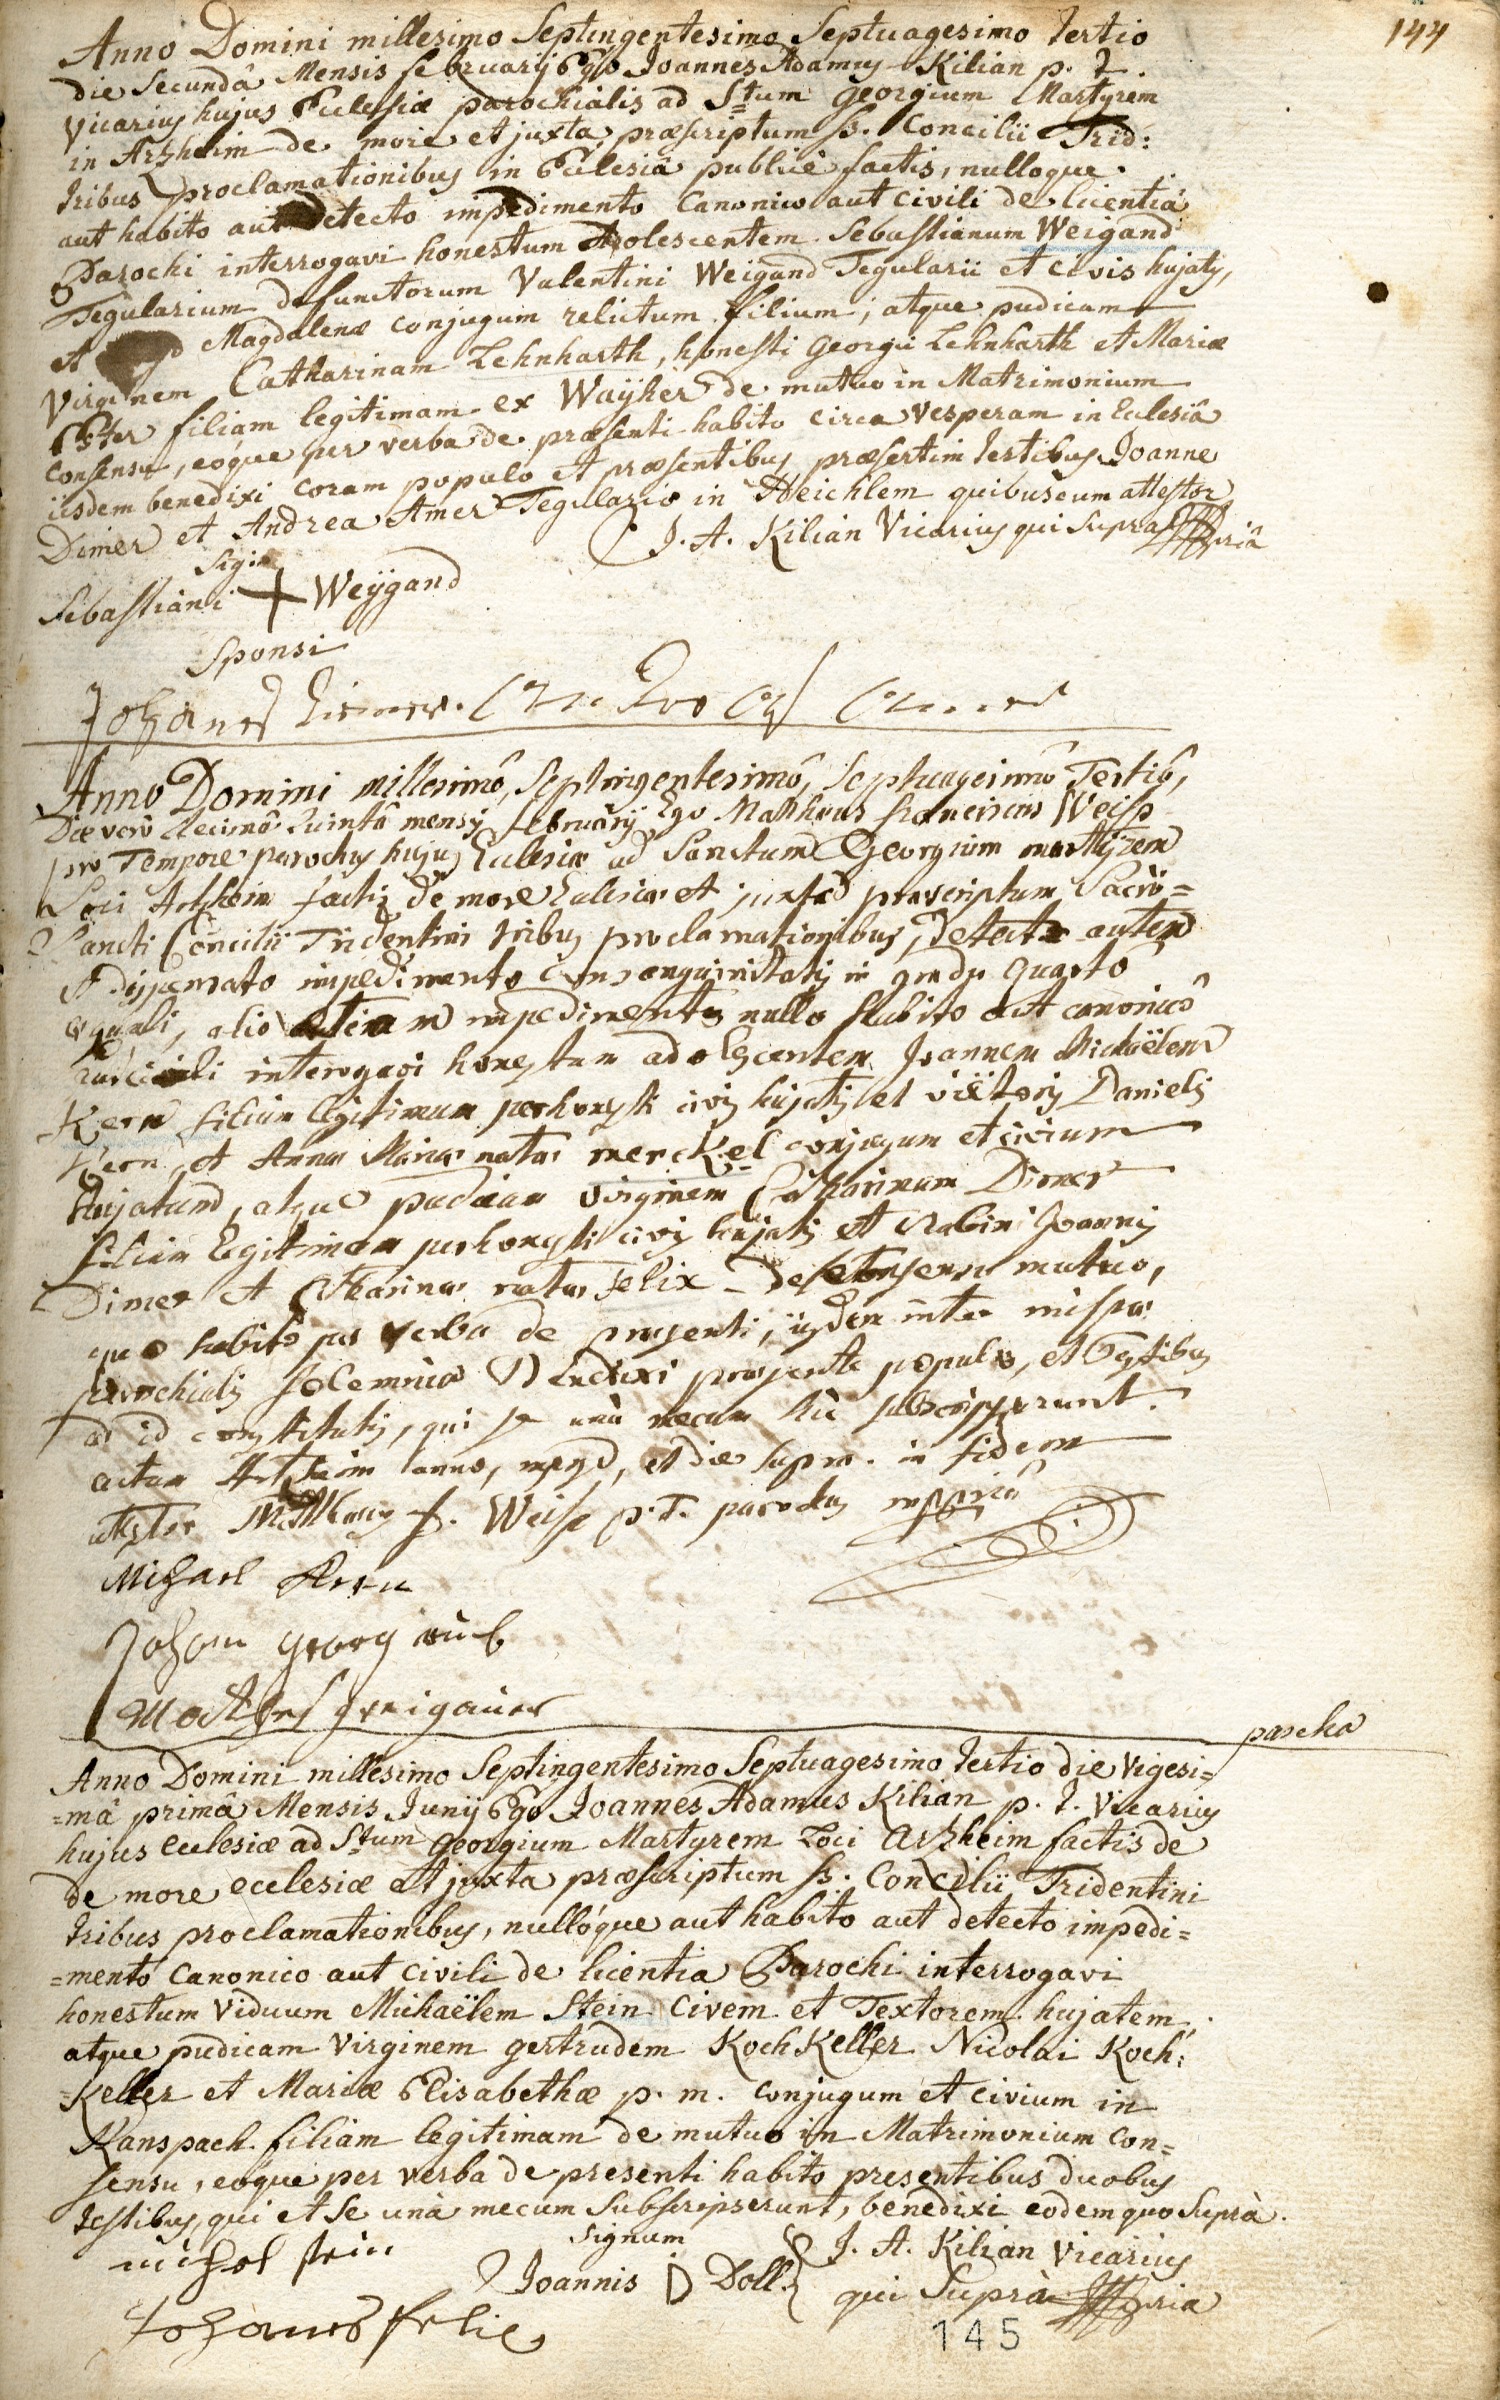 144
Anno Domini millesimo Septingentesimo Septuagesimo tertio
die Secundâ Mensis februarij Ego Joannes Adamus Kilian p. t.
Vicarius hujus Ecclesiæ parochialis ad Stum Georgium Martyrem
in Arzheim de more et juxta præscriptum ss. Concilii Trid:
tribus proclamationibus in Ecclesiâ publicè factis, nulloque
aut habito aut detecto impedimento Canonico aut civili de licentiâ
Parochi interrogavi honestum Adolescentem Sebastianum Weigand
Tegularium defunctorum Valentini Weigand Tegularii et civis hujatis,
et Magdalenæ conjugum relictum filium; atque pudicam
Virginem Catharinam Lehnharth, honesti Georgii Lehnharth et Mariæ
Ester filiam legitimam ex Waÿher de mutuo in Matrimonium
Consensu, eôque per verba de præsenti habito circa vesperam in Ecclesiâ
iisdem benedixi coram populo et præsentibus præsertim testibus Joanne
Dimer et Andrea Amer Tegulario in Heichlem quibuscum attestor
J. A. Kilian Vicarius qui Supra mppriâ
Sign
Sebastiani + Weÿgand
Sponsi
Johanes Dimer.
Anno Domini millesimô, Septingentesimô, Septuagesimô Tertiô,
Die verò decimâ quintâ mensis februarij Ego Matthæus franciscus Weiss
pro Tempore parochus hujus Ecclesiæ ad Sanctum Georgium martÿrem
Loci Artzheim factis de more Ecclesiæ et juxta præscriptum Sacro=
Sancti Concilii Tridentini tribus proclamationibus, Detecto autem
et dispensato impedimento consanguinitatis in gradu quarto
æquali, alio autem impedimento nullo habito aut canonico
aut civili interogavi honestum adolescentem Joannem Michaëlem
Kern filium legitimum perhonesti civis hujatis et viëtoris Danielis
Kern, et Annæ Mariæ natæ merckel conjugum et civium
hujatum, atque pudicam virginem Catharinam Dimer
filiam legitimam perhonesti civis hujatis et Joannis
Dimer et Catharinæ natæ Felix – de consensu mutuo,
quo habito per verba de præsenti, iisdem inter missæ
parochialis solemnia Benedixi præsente populo, et testibus
ad id constitutis, qui se unà mecum hic subscripserunt.
actum Artzheim anno, mense, et die supra. in fidem
attestor Matthæus f. Weiss p. T. parochus mppriâ
Michael Kern
Johan georg
pascha
Anno Domini millesimo Septingentesimo Septuagesimo tertio die Vigesi=
=mâ primâ Mensis Junij Ego Joannes Adamus Kilian p. t. Vicarius
hujus ecclesiæ ad Stum Georgium Martyrem Loci Arzheim factis de
de more ecclesiæ et juxta præscriptum ss. Concilii Tridentini
tribus proclamationibus, nullóque aut habito aut detecto impedi=
=mentó canonico aut civili de licentia Parochi interrogavi
honestum Viduum Michaëlem Stein Civem et Textorem hujatem,
atque pudicam Virginem gertrudem KochKeller Nicolai Koch:
=Keller et Mariæ Elisabethæ p. m. conjugum et civium in
Ranspach filiam legitimam de mutuo in Matrimonium Con=
sensu, eôque per verba de presenti habito presentibus duobus
testibus, qui et se unà mecum Subscripserunt, benedixi eodem quo Suprà.
michel stein
Signum
Joannis D Doll
J. A. Kilian Vicarius
qui Suprà mppria
Johanes felix
145